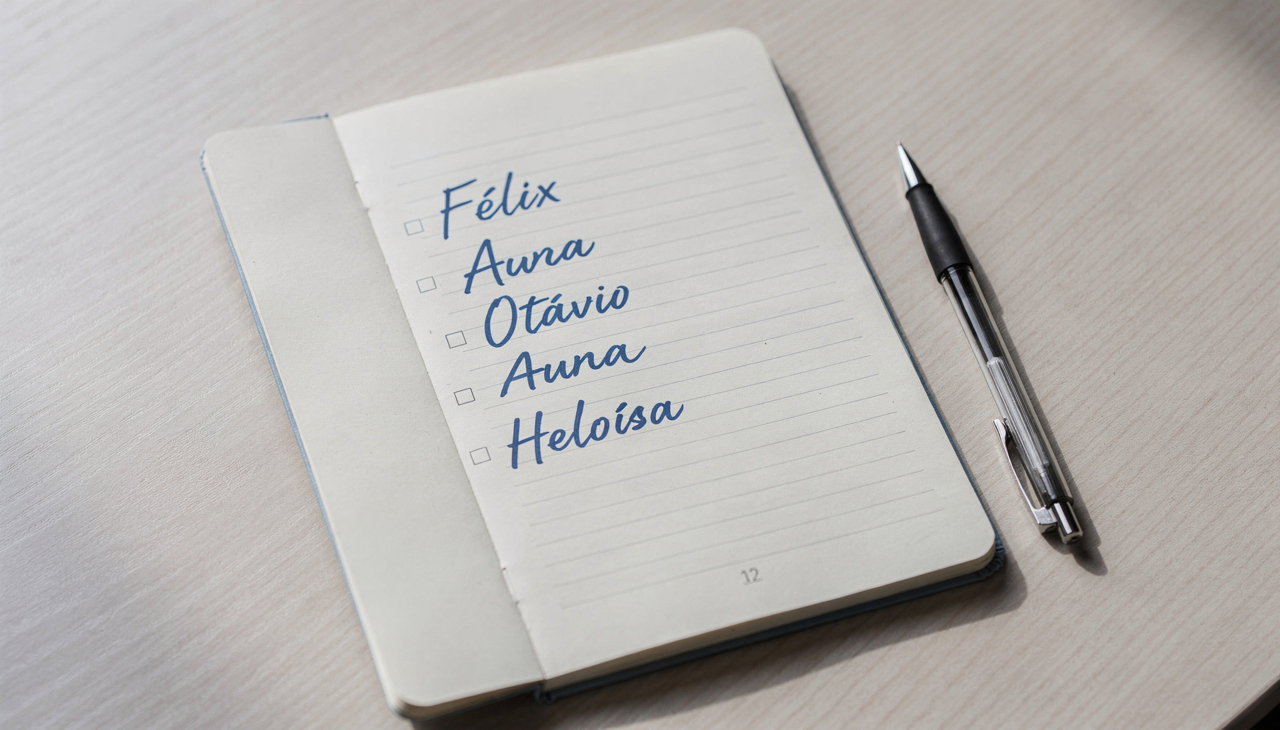 Félix
Auna
Otávio
Auna
Heloísa
12